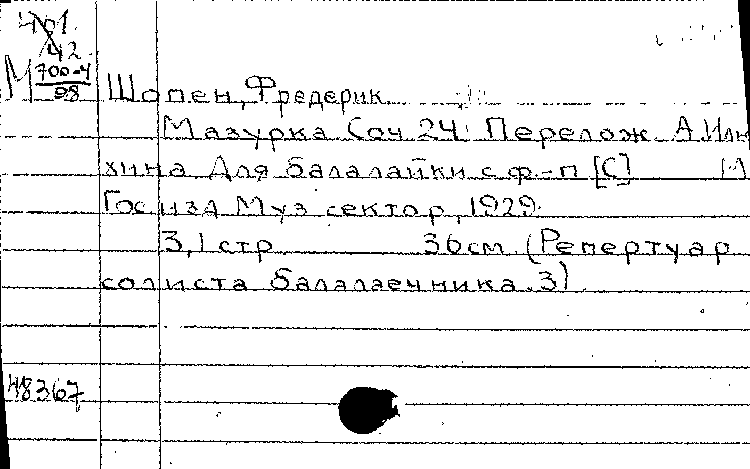 401
42
М 700-4
98
Шопен, Фредерик
Мазурка Соч 24. Перелож. А.Илю
хина Для балалайки с ф-п [С] [-]
Госизд Муз сектор, 1929.
3,1 стр 36см (Репертуар
солиста балалаечника.3)
48367